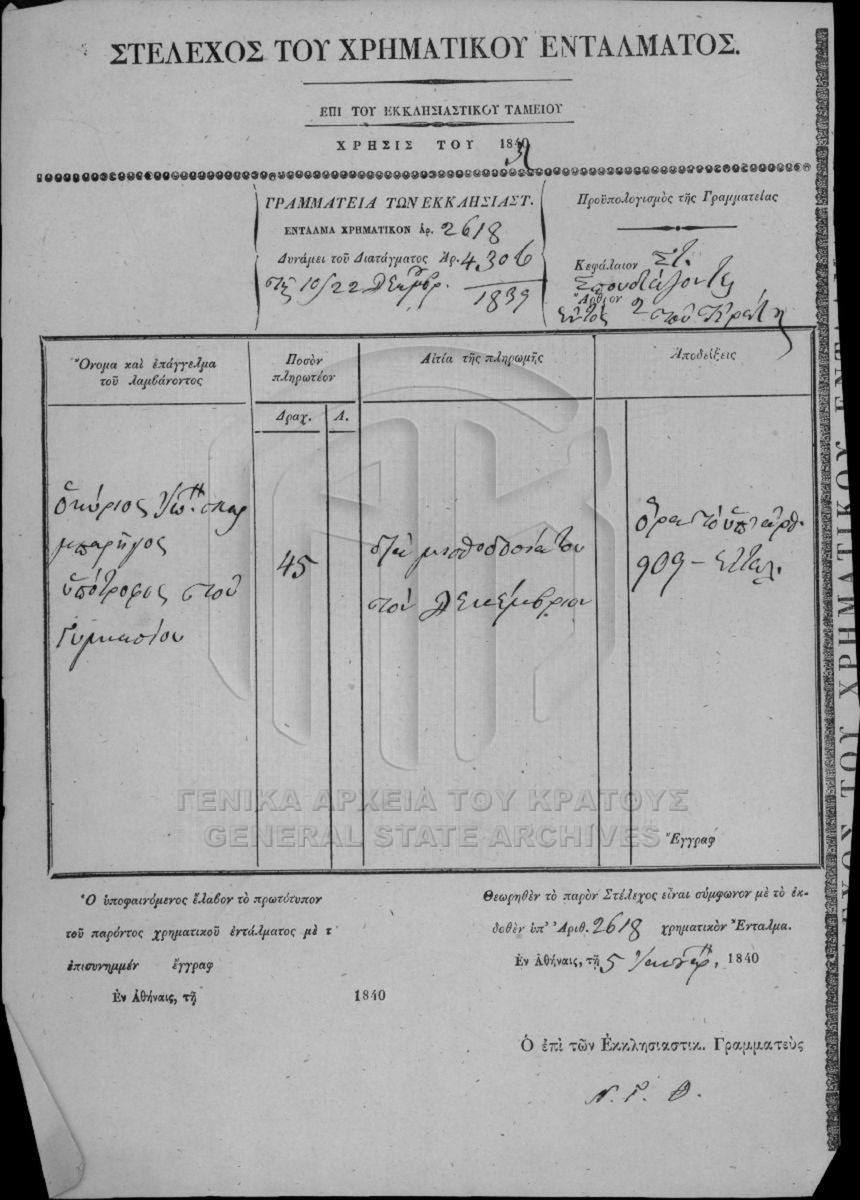 ΣΤΕΛΕΧΟΣ ΤΟΥ ΧΡΗΜΑΤΙΚΟΥ ΕΝΤΑΛΜΑΤΟΣ.
ΕΠΙ ΤΟΥ ΕΚΚΛΗΣΙΑΣΤΙΚΟΥ ΤΑΜΕΙΟΥ
ΧΡΗΣΙΣ ΤΟΥ 1840
ΓΡΑΜΜΑΤΕΙΑ ΤΩΝ ΕΚΚΛΗΣΙΑΣΤ.
ΕΝΤΑΛΜΑ ΧΡΗΜΑΤΙΚΟΝ Ἀρ. 2618
Δυνάμει τοῦ Διατάγματος Ἀρ. 4306
τῆς 10/22 Δεκεμβρ. 1839
Προϋπολογισμὸς τῆς Γραμματείας
Κεφάλαιον ΣΤ.
Ἄρθρον 2
Ὄνομα καὶ ἐπάγγελμα
τοῦ λαμβάνοντος
Ποσὸν
πληρωτέον
Δραχ. Λ.
Αἰτία τῆς πληρωμῆς
Ἀποδείξεις
ὁ κύριος Ἰω.
ὑπότροφος
Γυμνασίου
45
μισθοδοσία του
Δεκέμβριον
ὅρα τὸ ὑπ' ἀρθ.
909
Ἔγγραφ
ΓΕΝΙΚΑ ΑΡΧΕΙΑ ΤΟΥ ΚΡΑΤΟΥΣ
GENERAL STATE ARCHIVES
Ὁ ὑποφαινόμενος ἔλαβον τὸ πρωτότυπον
τοῦ παρόντος χρηματικοῦ ἐντάλματος μὲ τ
ἐπισυνημμέν ἔγγραφ
Ἐν Ἀθήναις, τῇ 1840
Θεωρηθὲν τὸ παρὸν Στέλεχος εἶναι σύμφωνον μὲ τὸ ἐκ-
δοθὲν ὑπ' Ἀριθ. 2618 χρηματικὸν Ἔνταλμα.
Ἐν Ἀθήναις, τῇ 5 Ἰανουαρ. 1840
Ὁ ἐπὶ τῶν Ἐκκλησιαστικ. Γραμματεὺς
Ν. Γ. Θ.